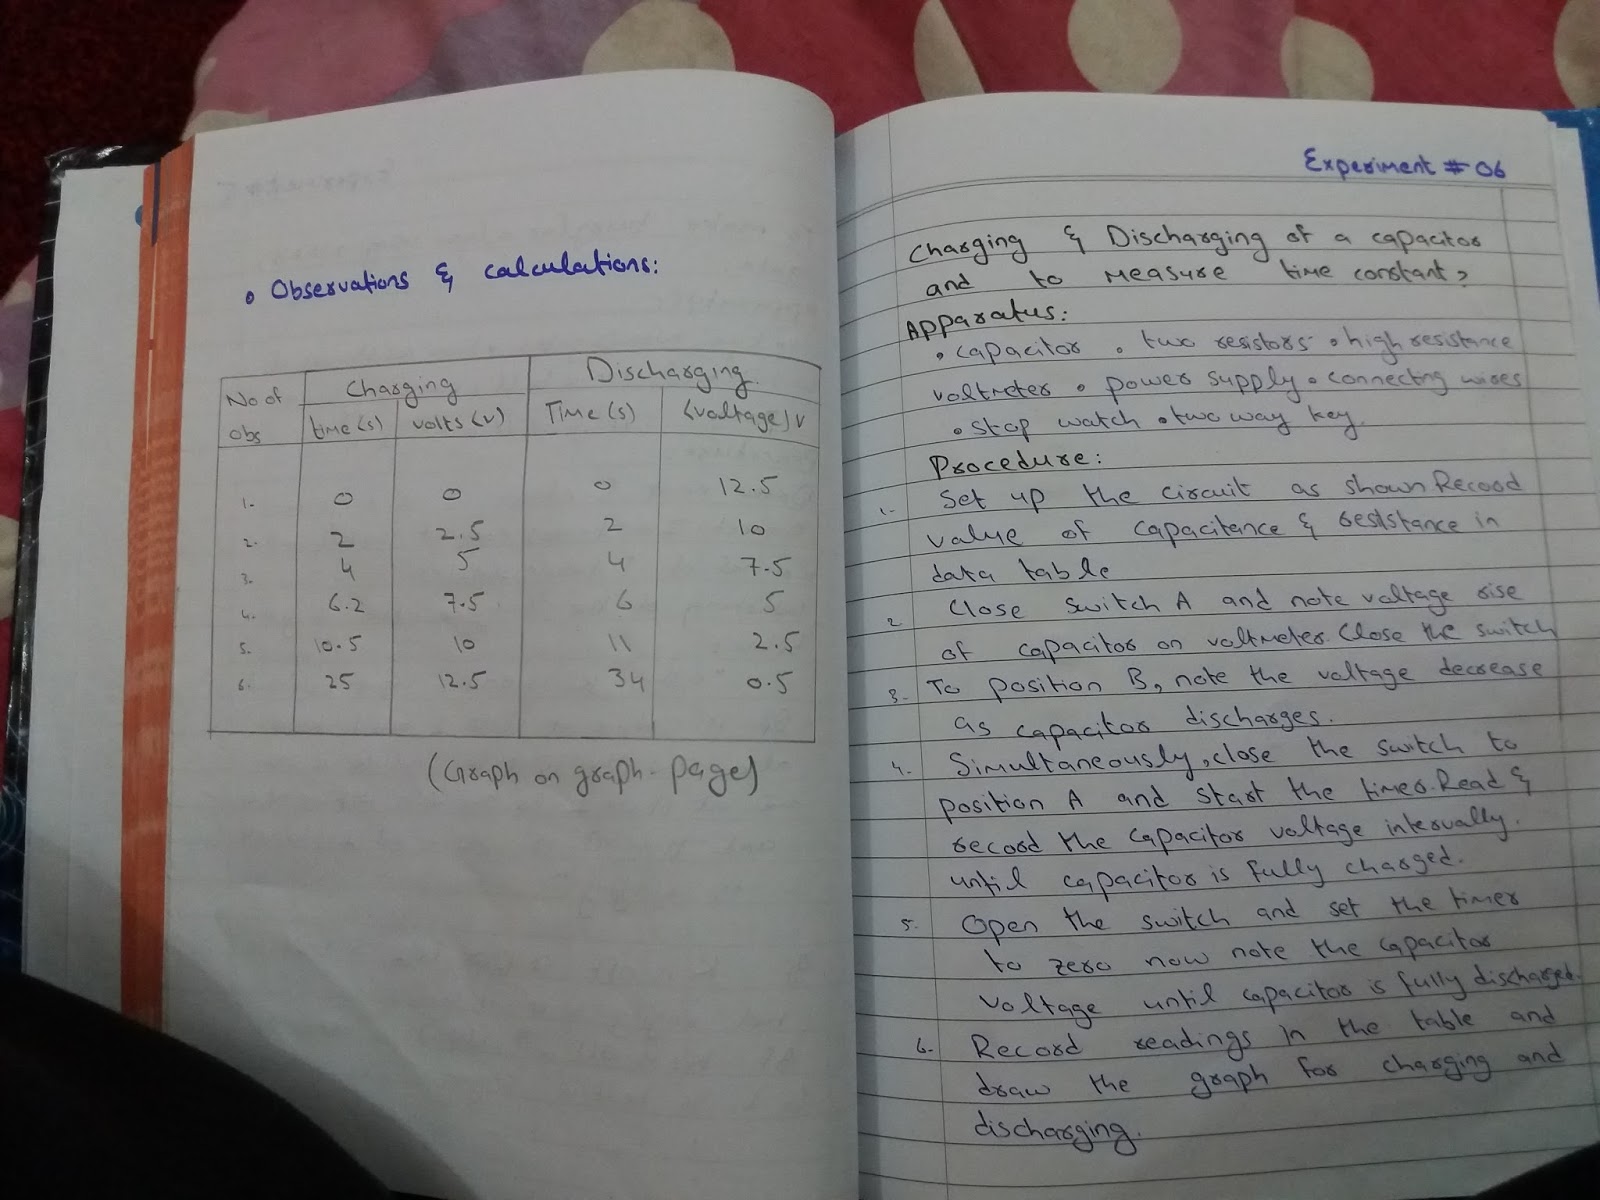 • Observations & calculations:
No of Obs | Charging | Discharging.
time(s) | volts (v) | Time (s) | (voltage) v
1. 0 0 0 12.5
2. 2 2.5 2 10
3. 4 5 4 7.5
4. 6.2 7.5 6 5
5. 10.5 10 11 2.5
6. 25 12.5 34 0.5
(Graph on graph-page)
Experiment # 06
Charging & Discharging of a capacitor
and to measure time constant?
Apparatus:
• capacitor • two resistors • high resistance
voltmeter • power supply • connectng wires
• stop watch • two way key.
Procedure:
1- Set up the circuit as shown Record
value of capacitance & resistance in
data table
2 Close switch A and note voltage rise
of capacitor on voltmeter. Close the switch
3- To position B, note the voltage decrease
as capacitor discharges.
4. Simultaneously, close the switch to
position A and start the timer. Read &
record the capacitor voltage intervally.
until capacitor is fully charged.
5. Open the switch and set the timer
to zero now note the capacitor
voltage until capacitor is fully discharged.
6- Record readings in the table and
draw the graph for charging and
discharging.